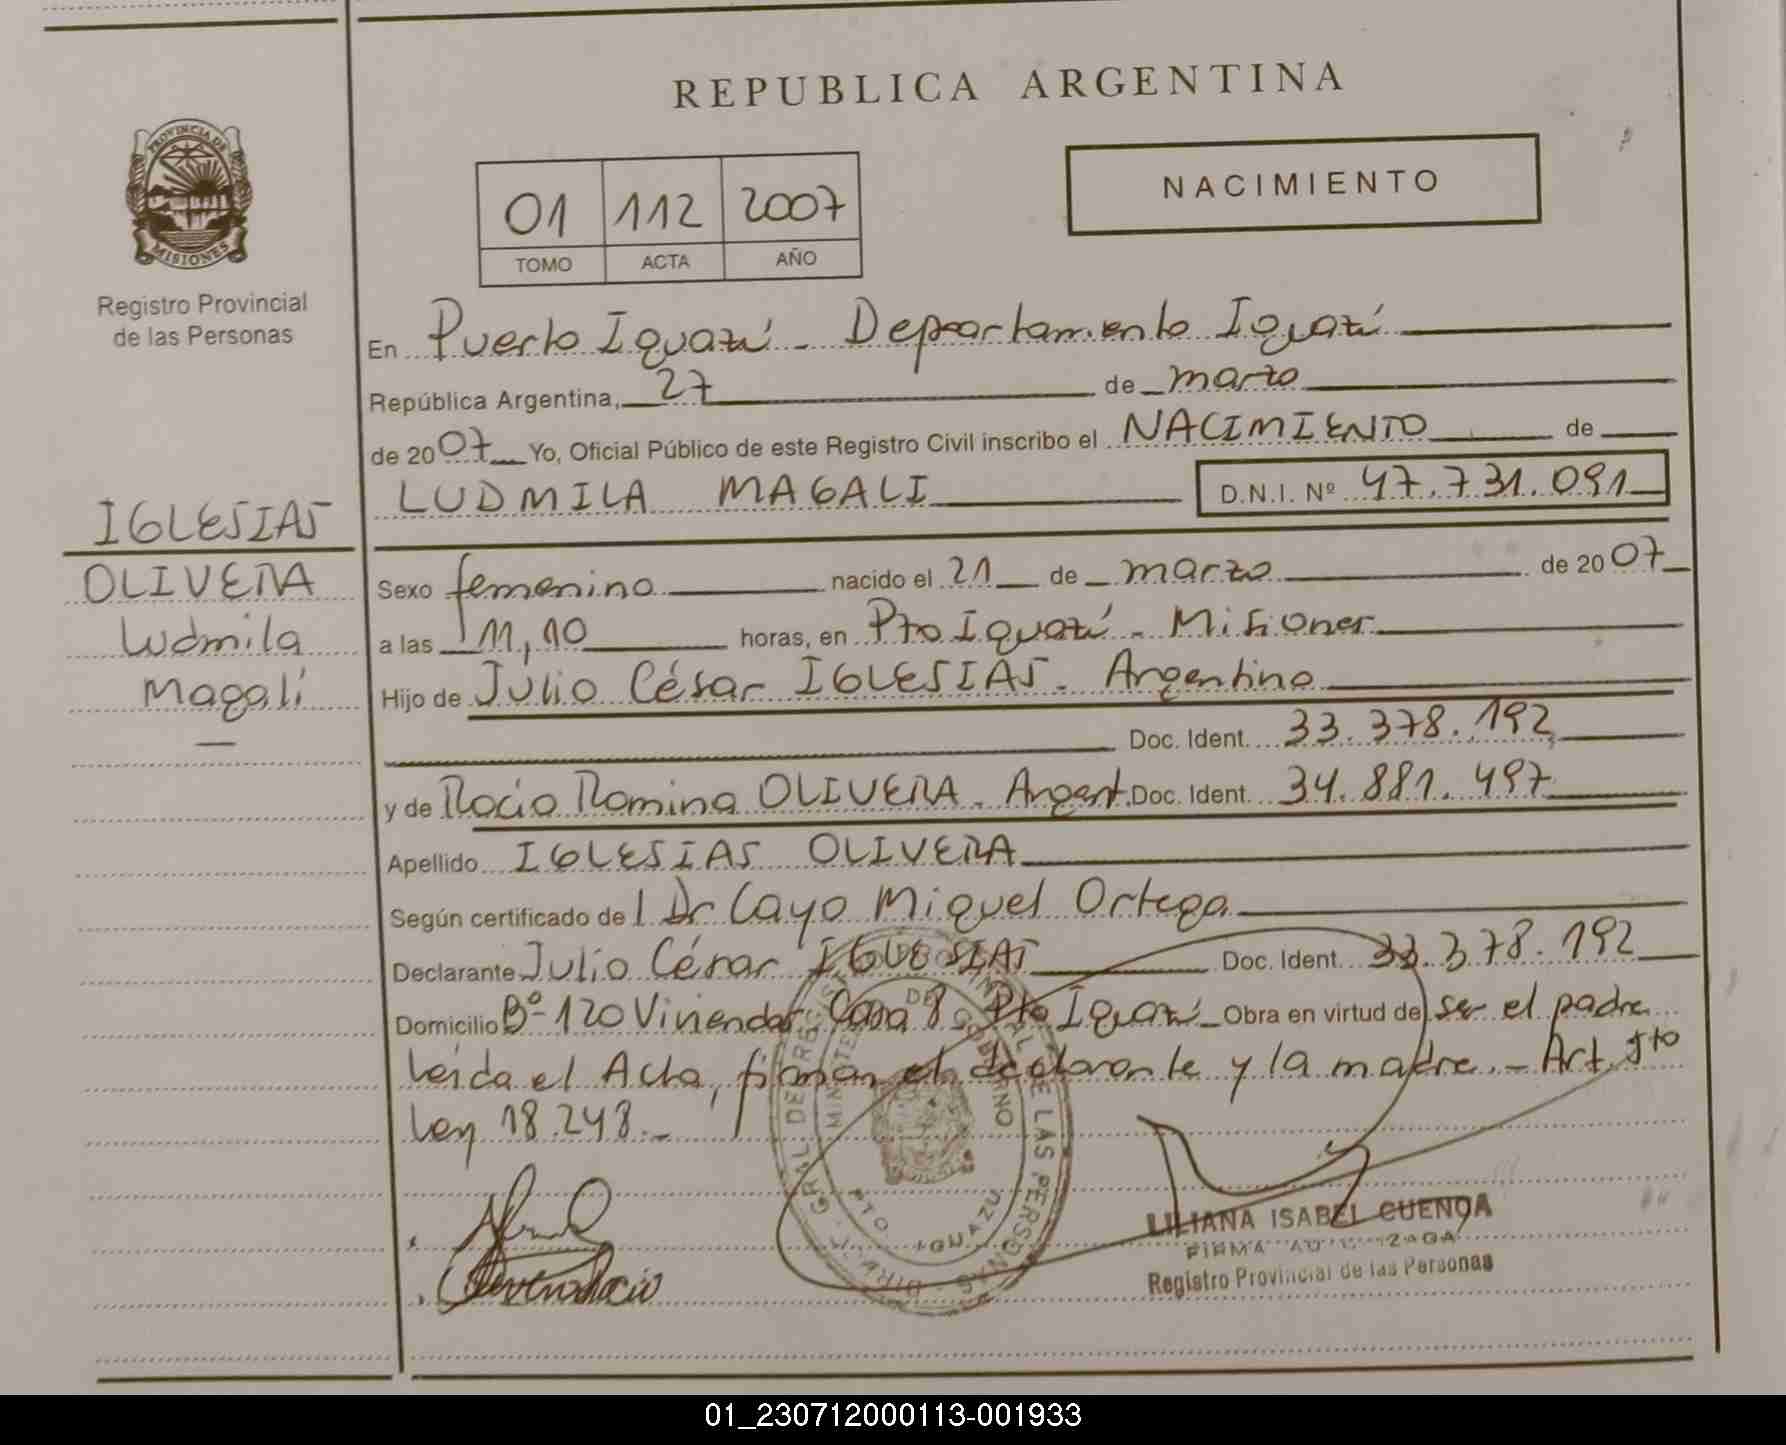 REPUBLICA ARGENTINA
PROVINCIA DE
MISIONES
Registro Provincial
de las Personas
01 112 2007
TOMO ACTA AÑO
NACIMIENTO
En Puerto Iguazú - Departamento Iguazú
República Argentina, 27 de marzo
de 2007 Yo, Oficial Público de este Registro Civil inscribo el NACIMIENTO de
LUDMILA MAGALI D.N.I. Nº 47.731.091
IGLESIAS
OLIVERA
Ludmila
Magalí
Sexo femenino nacido el 21 de marzo de 2007
a las 11,10 horas, en Pto Iguazú - Misiones
Hijo de Julio César IGLESIAS - Argentino
Doc. Ident. 33.378.192
y de Rocio Romina OLIVERA - Argent. Doc. Ident. 34.881.497
Apellido IGLESIAS OLIVERA
Según certificado del Dr Cayo Miguel Ortega
Declarante Julio César IGLESIAS Doc. Ident. 33.378.192
Domicilio Bº 120 Viviendas Casa 8 Pto Iguazú - Obra en virtud de ser el padre
Leída el Acta, firman el declarante y la madre. - Art. 5to
Ley 18.248.-
PTO IGUAZU
LILIANA ISABEL CUENCA
FIRMA AUTORIZADA
Registro Provincial de las Personas
01_230712000113-001933